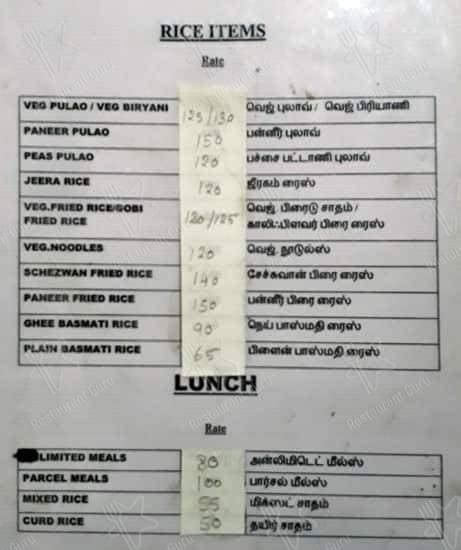 RICE ITEMS
Rate
VEG PULAO / VEG BIRYANI 125/130 வெஜ் புலாவ் / வெஜ் பிரியாணி
PANEER PULAO 150 பன்னீர் புலாவ்
PEAS PULAO 120 பச்சை பட்டாணி புலாவ்
JEERA RICE 120 ஜீரகம் ரைஸ்
VEG.FRIED RICE/GOBI FRIED RICE 120/125 வெஜ். பிரைடு சாதம் / காலிஃபிளவர் பிரை ரைஸ்
VEG.NOODLES 120 வெஜ். நூடுல்ஸ்
SCHEZWAN FRIED RICE 140 சேச்சுவான் பிரை ரைஸ்
PANEER FRIED RICE 150 பன்னீர் பிரை ரைஸ்
GHEE BASMATI RICE 90 நெய் பாஸ்மதி ரைஸ்
PLAIN BASMATI RICE 65 பிளைன் பாஸ்மதி ரைஸ்
LUNCH
Rate
LIMITED MEALS 80 அன்லிமிடெட் மீல்ஸ்
PARCEL MEALS 100 பார்சல் மீல்ஸ்
MIXED RICE 55 மிக்ஸட் சாதம்
CURD RICE 50 தயிர் சாதம்